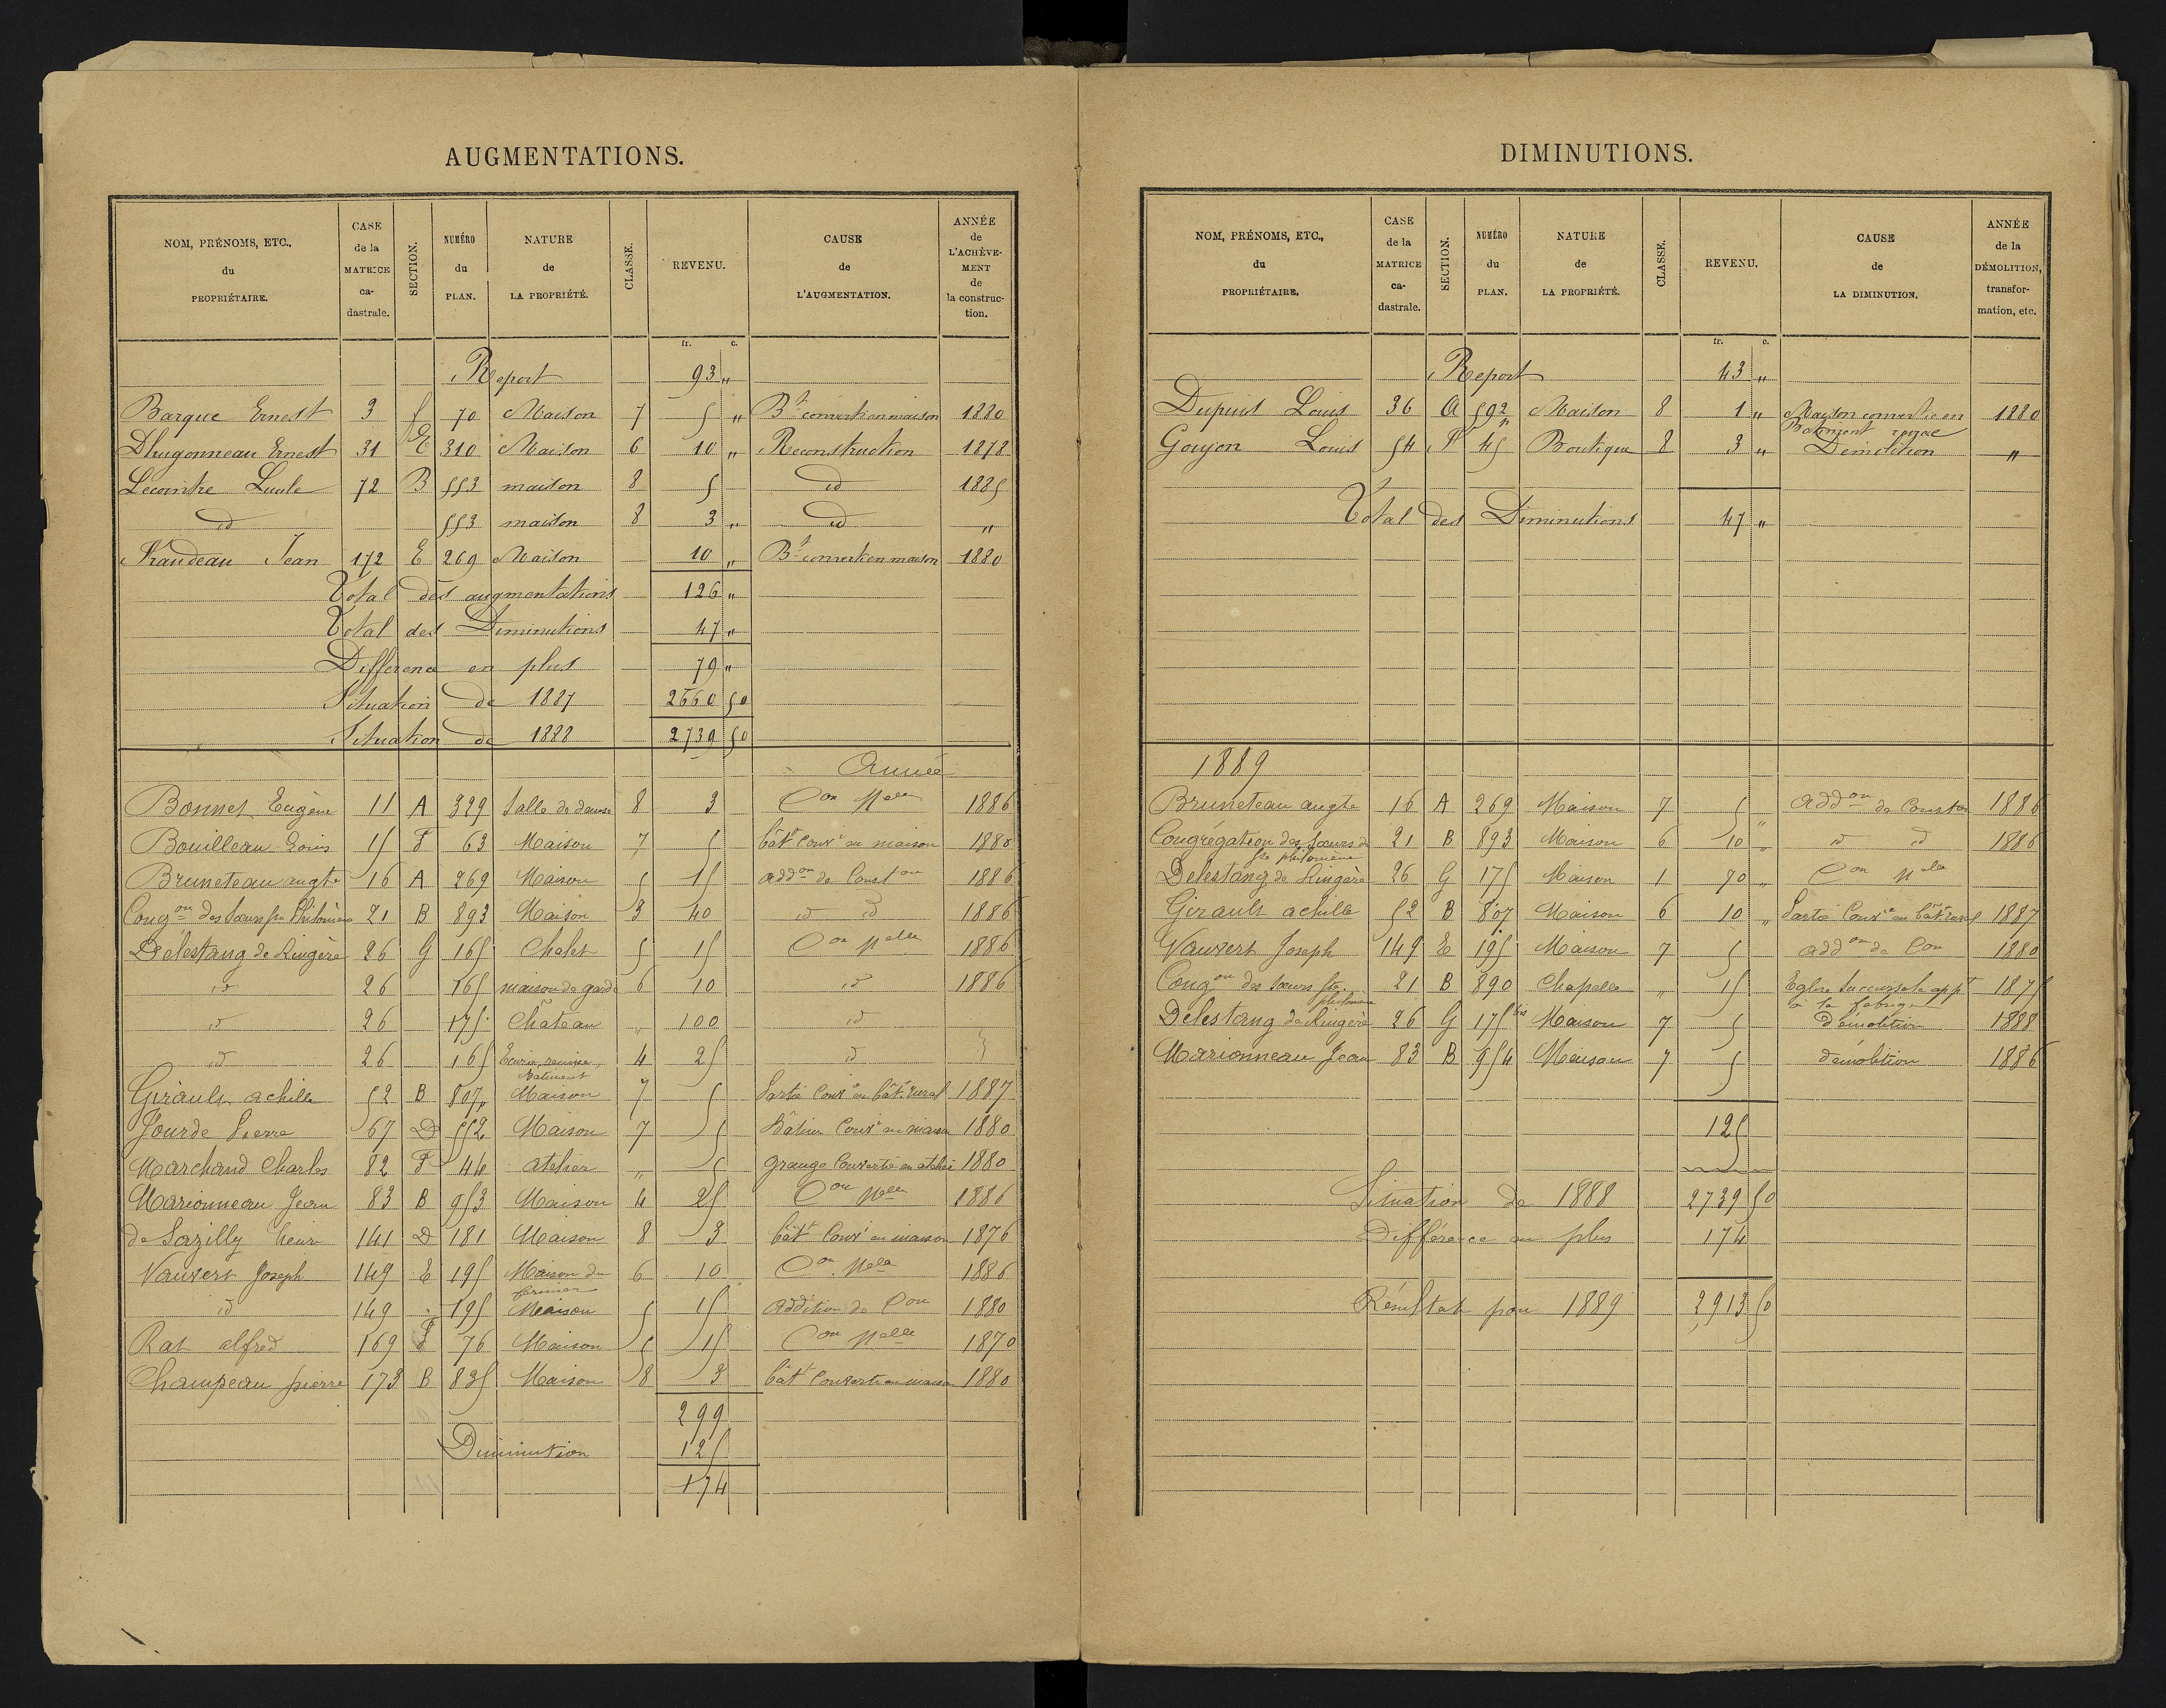 AUGMENTATIONS.
NOM, PRÉNOMS, ETC., du PROPRIÉTAIRE. CASE de la MATRICE ca-dastrale. SECTION. NUMÉRO du PLAN. NATURE de LA PROPRIÉTÉ. CLASSE. REVENU. CAUSE de L'AUGMENTATION. ANNÉE de L'ACHÈVE-MENT de la construc-tion.
fr. c.
Report 93 "
Barque Ernest 3 f 70 Maison 7 5 " Bt converti en maison 1880
Dhugonneau Ernest 31 E 310 Maison 6 10 " Reconstruction 1878
Lecointre Lucile 72 B 553 maison 8 5 id 1885
id 553 maison 8 3 " id "
Naudeau Jean 172 E 269 Maison 10 " Bt converti en maison 1880
Total des augmentations 126 "
Total des Diminutions 47 "
Différence en plus 79 "
Situation de 1887 2660 50
Situation de 1888 2739 50
Année
Bonnet Eugène 11 A 329 Salle de danse 8 3 Con Nelle 1886
Bouilleau Louis 15 F 63 Maison 7 5 bât Convt en maison 1880
Bruneteau augte 16 A 269 Maison 5 15 addon de Conston 1886
Congon des Soeurs Ste Philomène 21 B 893 Maison 3 40 id id 1886
Delestang de Ringère 26 G 165 Chalet 5 15 Con Nelle 1886
id 26 165 maison de garde 6 10 id 1886
id 26 175 Château " 100 id
id 26 165 Ecurie, remise, Batiment 4 25 id
Girault achille 52 B 807 " Maison 7 5 Partie Convie en bât. rural 1887
Jourde Pierre 67 D 552 Maison 7 5 Bâtim Convt en maison 1880
Marchand Charles 82 F 44 atelier " 5 grange Convertie en atelier 1880
Marionneau Jean 83 B 953 Maison 4 25 Con Nelle 1886
de Sazilly henri 141 D 181 Maison 8 3 bât Convt en maison 1876
Vauvert Joseph 149 E 195 Maison du fermier 6 10 Con Nelle 1886
id 149 195 Maison 5 15 addition de Con 1880
Rat alfred 169 F 76 Maison 5 15 Con Nelle 1870
Champeau pierre 173 B 835 Maison 8 3 bât Converti en maison 1880
299
Diminution 125
174
DIMINUTIONS.
NOM, PRÉNOMS, ETC., du PROPRIÉTAIRE. CASE de la MATRICE ca-dastrale. SECTION. NUMÉRO du PLAN. NATURE de LA PROPRIÉTÉ. CLASSE. REVENU. CAUSE de LA DIMINUTION. ANNÉE de la DÉMOLITION, transfor-mation, etc.
fr. c.
Report 43 "
Dupuis Louis 36 A 592 Maison 8 1 " Maison convertie en Batiment rural 1880
Goujon Louis 54 F 45 Boutique 8 3 " Démolition "
Total des Diminutions 47 "
1889
Bruneteau augte 16 A 269 Maison 7 5 " addon de Conston 1886
Congrégation des Soeurs de Ste philomène 21 B 893 Maison 6 10 " id id 1886
Delestang de Ringère 26 G 175 Maison 1 70 " Con Nelle
Girault achille 52 B 807 Maison 6 10 " Partie Convie en bât. rural 1887
Vauvert Joseph 149 E 195 Maison 7 5 addon de Con 1880
Congon des soeurs Ste philomène 21 B 890 Chapelle " 15 Eglise succursale appt à la fabrique 1875
Delestang de Ringère 26 G 175 bis Maison 7 5 démolition 1888
Marionneau Jean 83 B 954 Maison 7 5 démolition 1886
125
Situation de 1888 2739 50
Différence en plus 174
Résultat pour 1889 2913 50